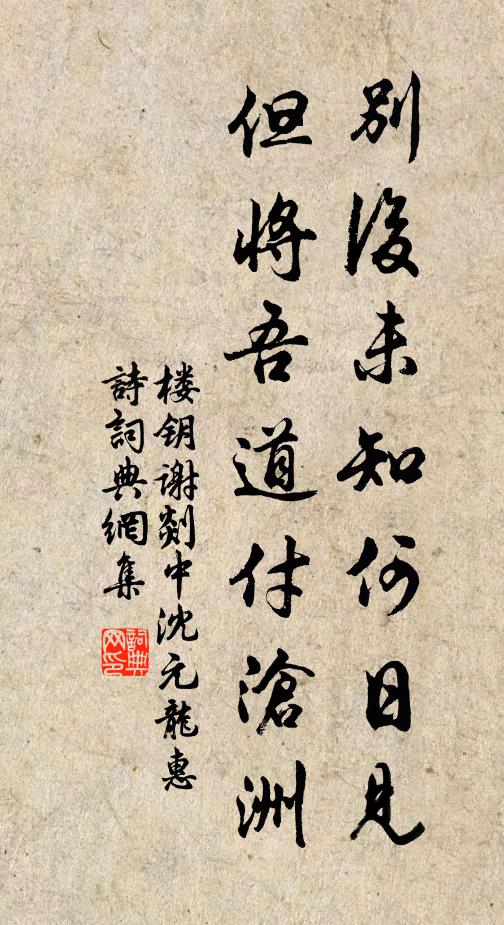 別後未知何日見
但將吾道付滄洲
楼钥谢剡中沈元龍惠
詩詞典網集
詞典
网印